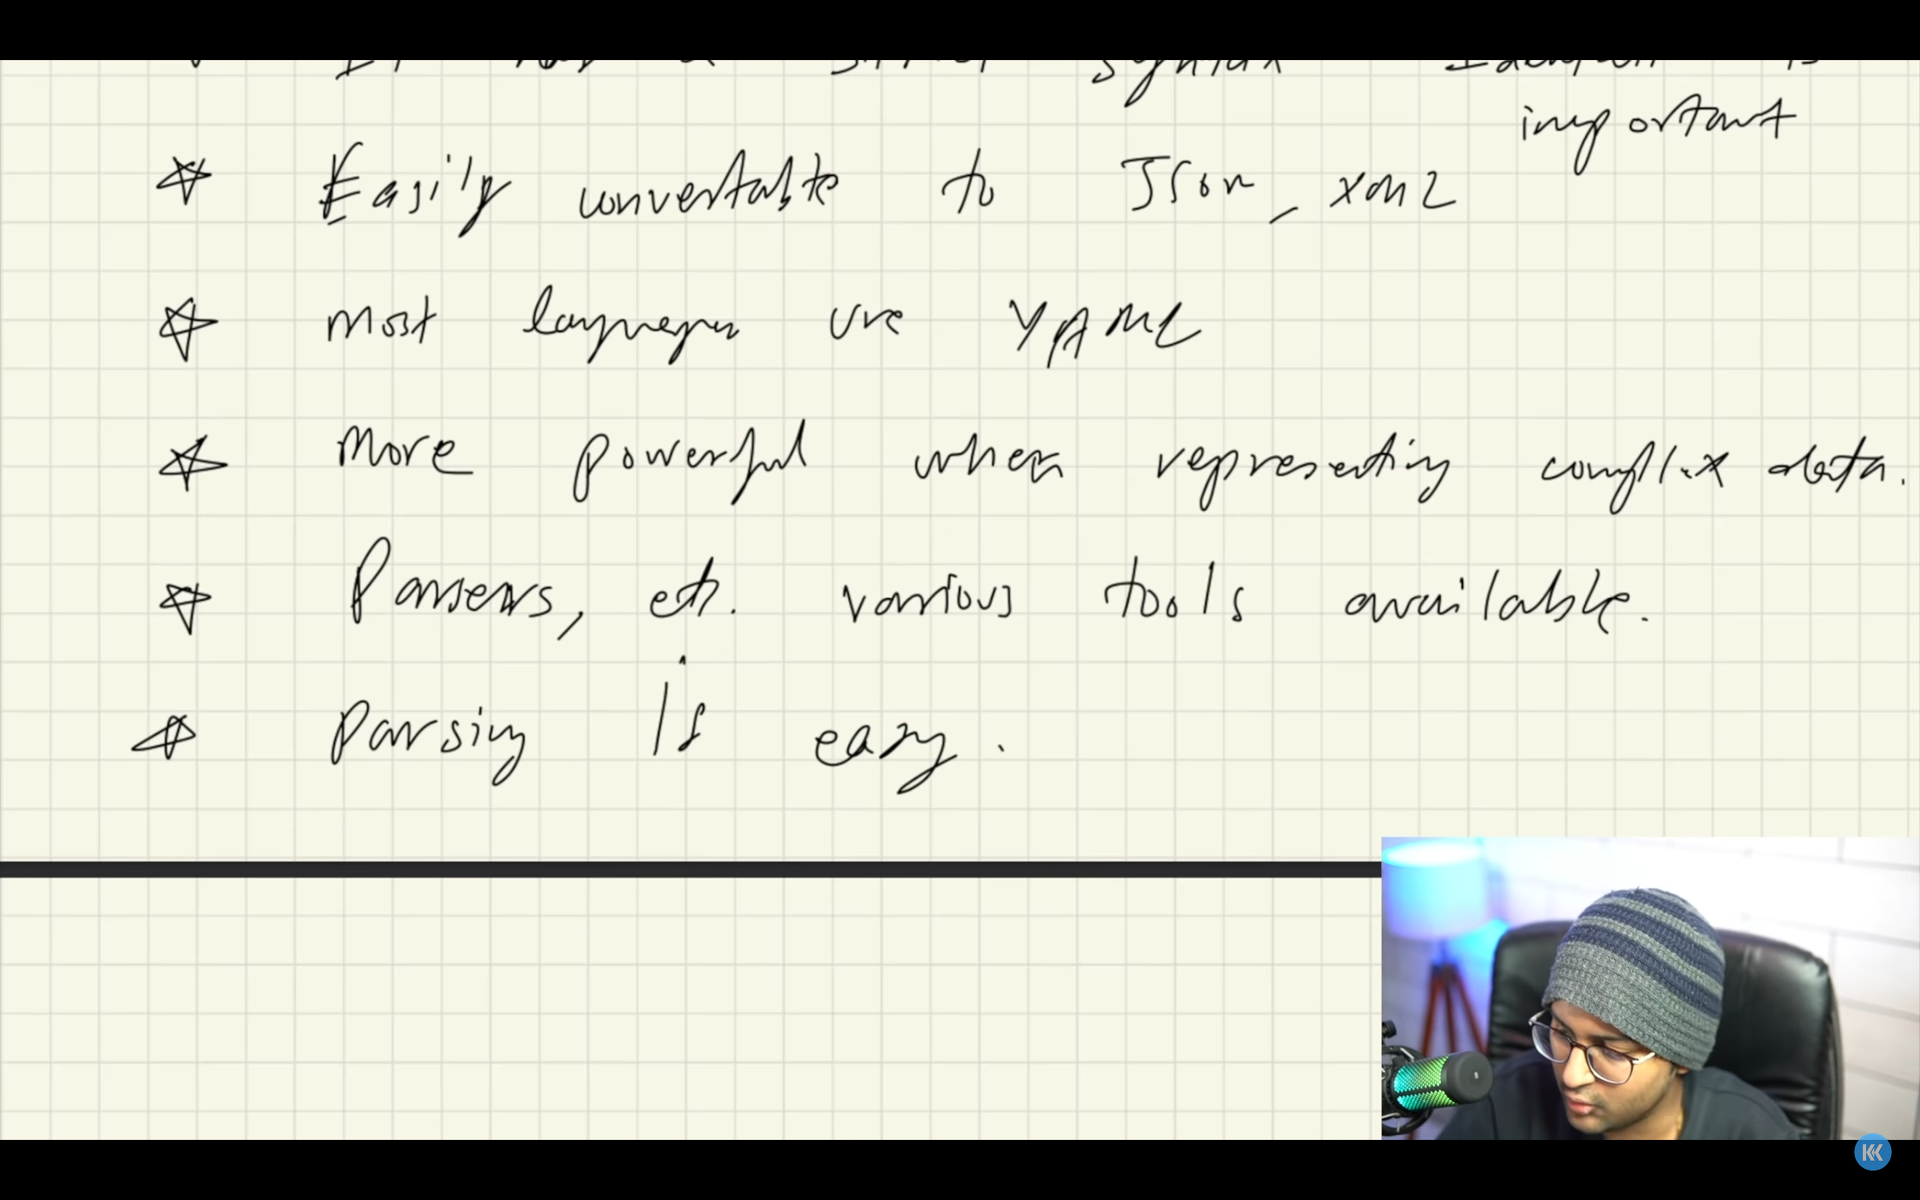 It has a strict syntax Indentation is
important
Easily convertable to Json, XML
most languages use YAML
More powerful when representing complex data.
Parsers, etc. various tools available.
Parsing is easy.
KK